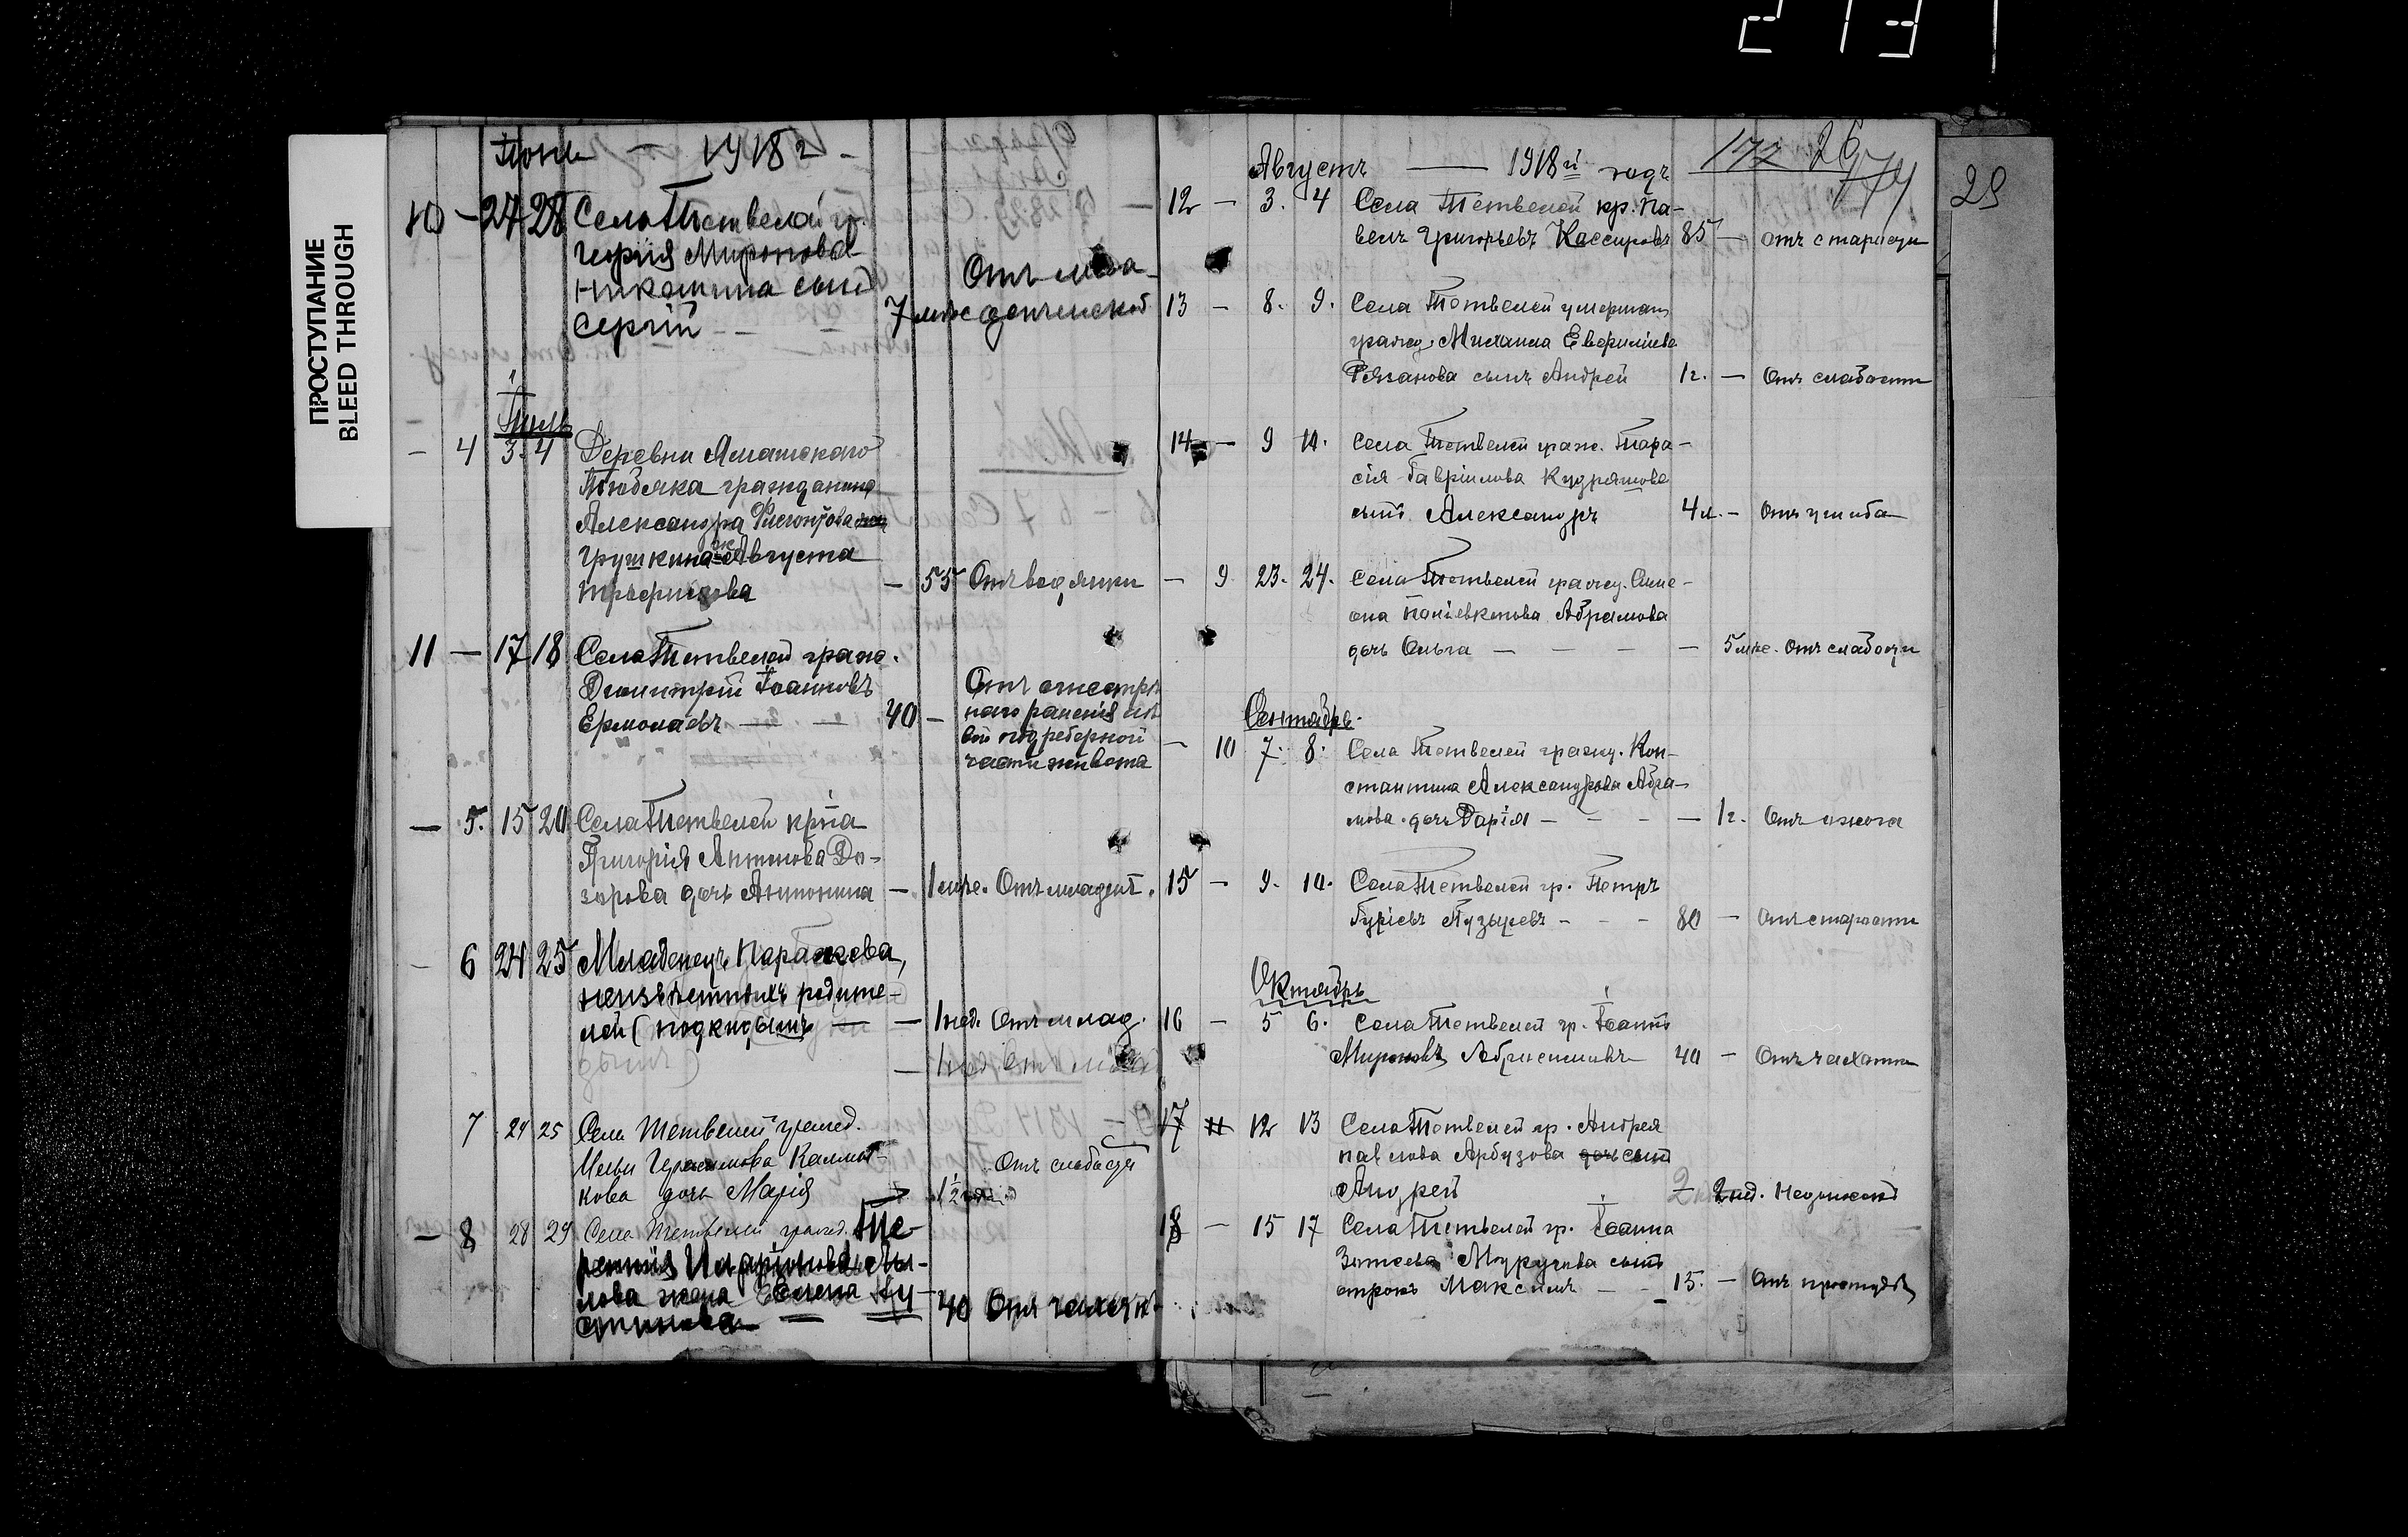 213
ПРОСТУПАНИЕ
BLEED THROUGH
Iюнь — 1918 г
10 – 27 28 Села Тетвелей гр.
Георгiя Миронова
Никошина сынъ
Сергiй — 7 мѣс Отъ мла-
денческой
Iюль
— 4 3. 4 Деревни Ямашскаго
Тюбяка гражданина
Александра Флегонтова
Грушкина Августа
— 55 Отъ водянки
11 — 17 18 Села Тетвелей граж.
Димитрiй Iоанновъ
Ермолаевъ — 40 —
Отъ огнестрѣль
наго раненiя лѣ
вой подреберной
части живота
— 5. 15 20 Села Тетвелей кр-на
Григорiя Антонова До-
зорова дочь Антонина — 1 мѣс. Отъ младен.
— 6 24 25 Младенецъ Параскева,
неизвѣстныхъ родите-
лей (подкидышъ — — 1 нед. Отъ млад.
дышъ)
7 24 25 Села Тетвелей гражд.
Ильи Герасимова Калмы-
кова дочь Марiя 1½ Отъ слабости
— 8 28 29 Села Тетвелей гражд. Те-
рентiя Иларiонова
жена Елена
40 Отъ чахотк.
172 26
174
29
Августъ — 1918й годъ
12 — 3. 4 Села Тетвелей кр. Па-
велъ Григорьевъ Кассировъ 85 — отъ старости
13 — 8. 9. Села Тетвелей умершаго
гражд. Михаила Евфимiева
Рязанова сынъ Андрей 1 г. — Отъ слабости
14 — 9 11. Села Тетвелей граж. Тара-
сiя Гаврiилова Кудряшова
сынъ Александръ 4 л. – Отъ ушиба
— 9 23. 24. Села Тетвелей гражд. Симе-
она Полiевктова Абрамова
дочь Ольга — — — — 5 мѣс. Отъ слабости
Сентябрь.
— 10 7. 8. Села Тетвелей гражд. Кон-
стантина Александрова Абра-
мова дочь Дарiя — — — — 1 г. Отъ ожога
15 — 9. 10. Села Тетвелей гр. Петръ
Гурiевъ Пузыревъ – – – 80 — Отъ старости
Октябрь
16 — 5 6. Села Тетвелей гр. Iоаннъ
Мироновъ 40 — Отъ чахотки
17 12 13 Села Тетвелей гр. Андрея
Павлова Арбузова дочь сынъ
Андрей — 2 нед. Недоносокъ
18 — 15 17 Села Тетвелей гр. Iоанна
Зотеева сынъ
отрокъ Максимъ — – 15. — Отъ простуды